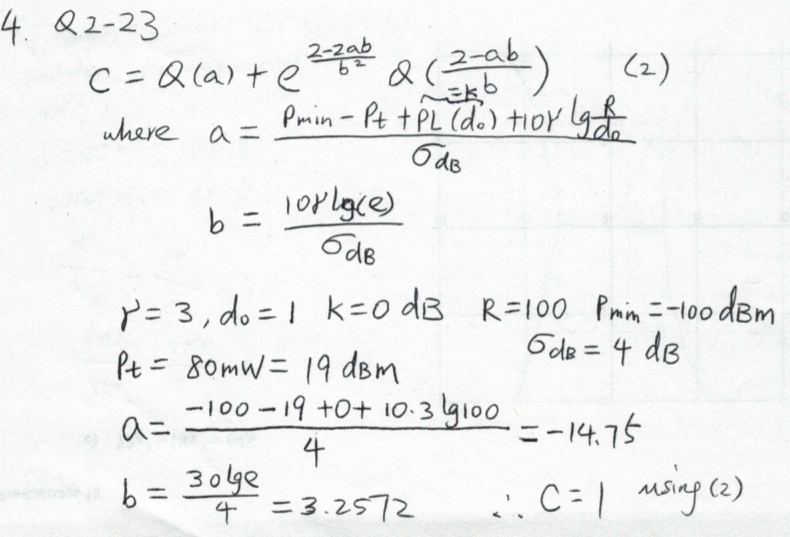 4. Q2-23
C = Q(a) + e^{\frac{2-2ab}{b^2}} Q(\frac{2-ab}{b}) (2)
=-K
where a = \frac{Pmin - Pt + PL(d₀) + 10γ lg\frac{R}{d₀}}{σdB}
b = \frac{10γ lg(e)}{σdB}
γ = 3, d₀ = 1 K = 0 dB R = 100 Pmin = -100 dBm
σdB = 4 dB
Pt = 80mW = 19 dBm
a = \frac{-100 - 19 + 0 + 10·3 lg100}{4} = -14.75
b = \frac{30lge}{4} = 3.2572 ∴ C = 1 using (2)